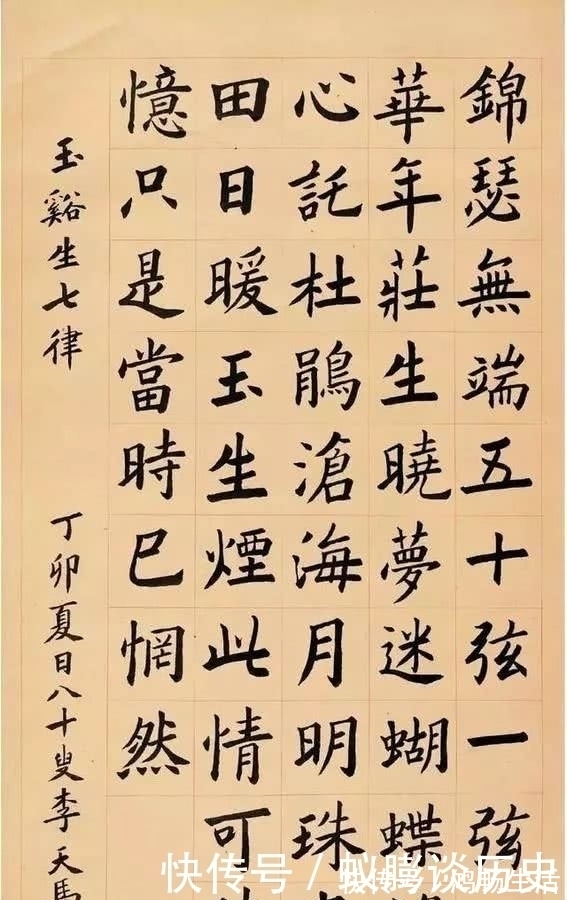 錦瑟無端五十弦一弦
華年莊生曉夢迷蝴蝶
心託杜鵑滄海月明珠
田日暖玉生煙此情可
憶只是當時已惘然
玉谿生七律
丁卯夏日八十叟李天馬
快传号/蚁腾谈历史